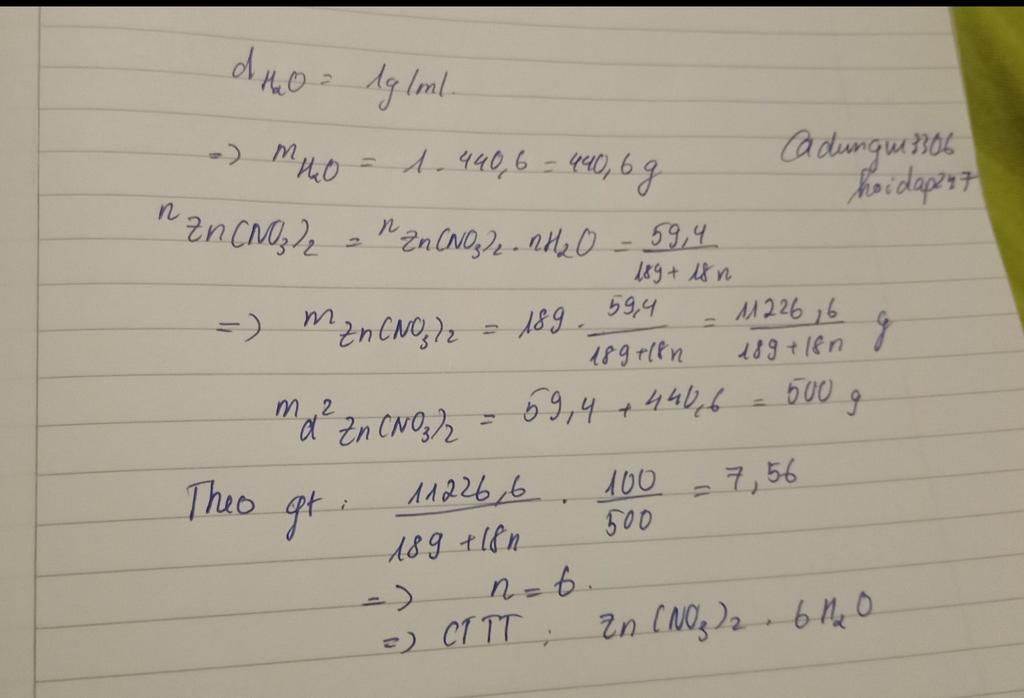 d H₂O = 1g/ml.
=> m H₂O = 1 . 440,6 = 440,6 g
@adungw3306
hoidap247
n Zn(NO₃)₂ = n Zn(NO₃)₂ . nH₂O = 59,4 / (189 + 18n)
=> m Zn(NO₃)₂ = 189 . 59,4 / (189 + 18n) = 11226,6 / (189 + 18n) g
m d² Zn(NO₃)₂ = 59,4 + 440,6 = 500 g
Theo gt : 11226,6 / (189 + 18n) . 100 / 500 = 7,56
=> n = 6.
=> CTTT : Zn(NO₃)₂ . 6H₂O